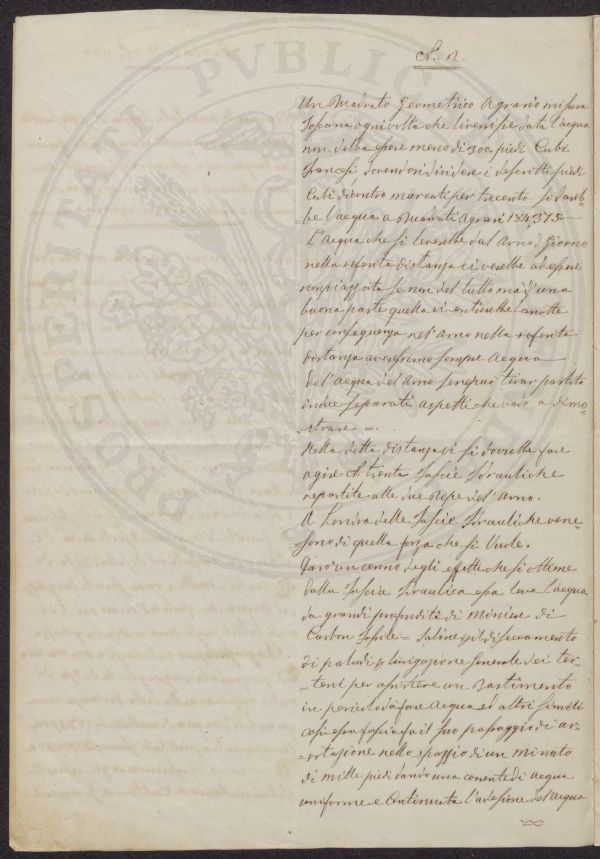 N. 12.
Un Quadrato Geometrico Agrario misura
Toscana ogni volta che li venisse data l'acqua
non debba essere meno di 300 piedi Cubi
Francesi dovendosi dividere i descritti piedi
Cubi dicontro marcati per trecento si dareb=
=be l'acqua a Quadrati Agrari 184375—
L'Acqua che si leverebbe dal Arno di Giorno
nella referita distanza ci verebbe ad essere
rimpiazzata se non del tutto ma di una
buona parte quella vi entrerebbe la notte
per conseguenza nel'Arno nella referita
distanza averessimo sempre Acqua
Del'acqua del'Arno se ne può tirar partito
in due separati aspetti che vado a dimo=
strare =.
Nella detta distanza ci si dovrebbe fare
agire N. trenta Fascie Idrauliche
repartite alle due Ripe del'Arno.
A Londra dalle Fascie Idrauliche vene
sono di quella forza che si Vuole.
Darò un cenno degli effetti che si ottiene
dalla Fascia Idraulica essa leva l'acqua
da grandi profondità di Miniere di
Carbon Fossile = Saline pel diseccamento
di paludi per l'irigazione Generale dei ter=
=reni per assistere un Bastimento
in pericolo di fare Acqua ed altri simili
casi essa fascia fa il suo passaggio di ar=
=rotazione nello spazzio di un minuto
di mille piedi dando una corrente di acqua
uniforme e Continuata l'adesione del'Acqua
PROSPERITATI PVBLICAE